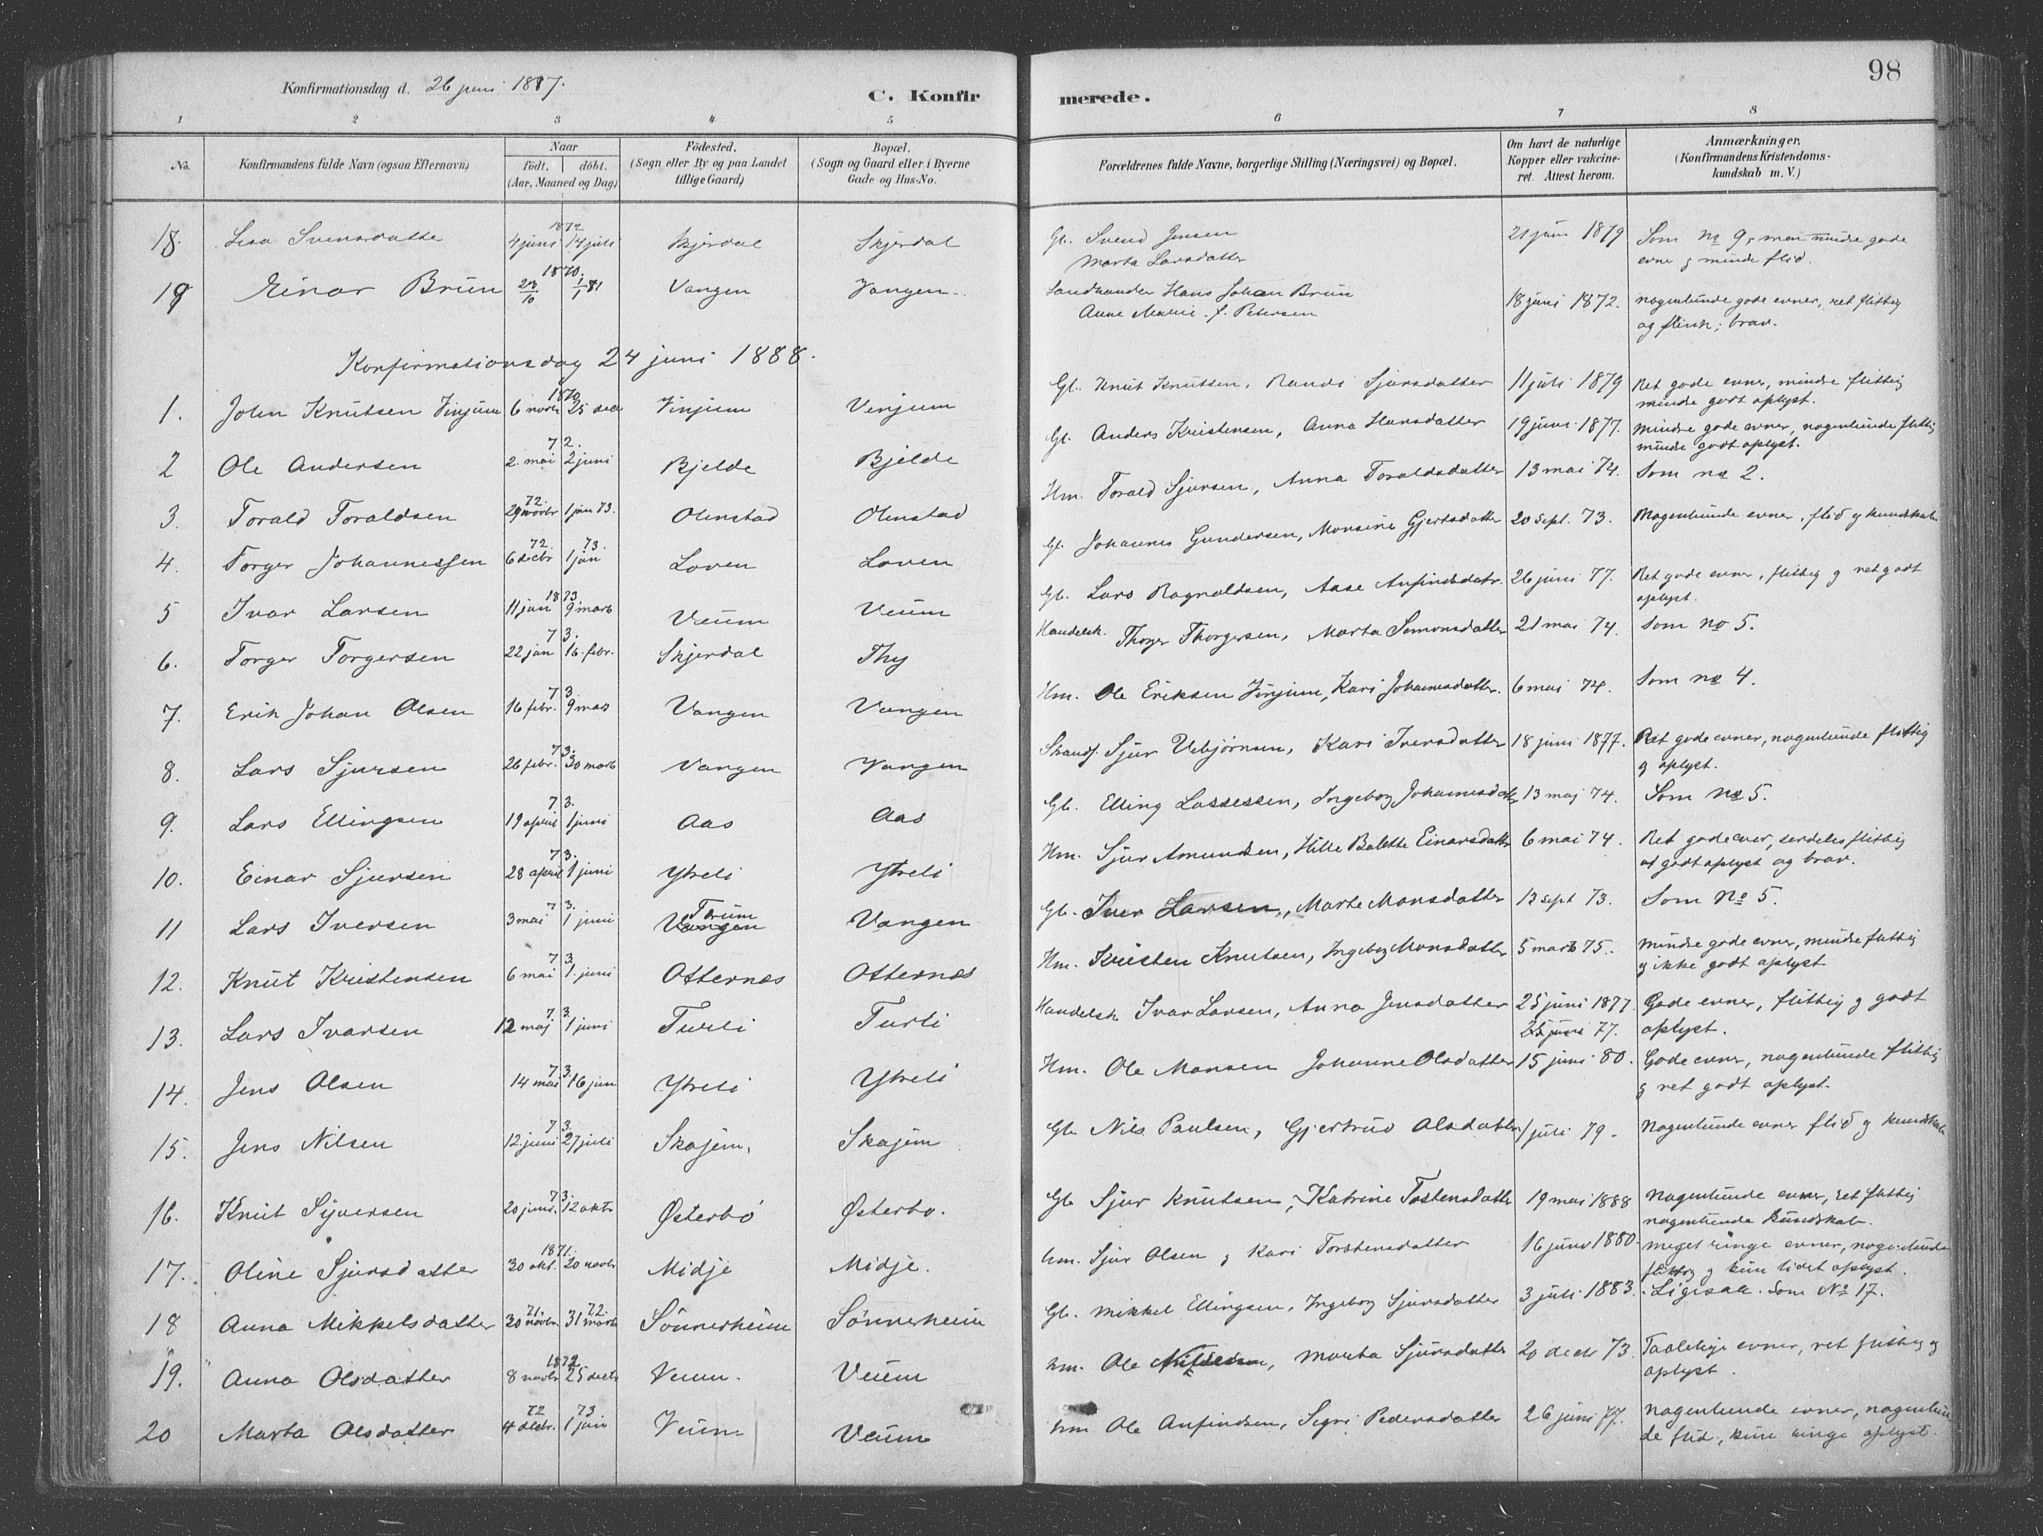 98
Konfirmationsdag d. 26 juni 1887.
C. Konfirmerede.
1 2 3 4 5 6 7 8
No. Konfirmandens fulde Navn (ogsaa Efternavn) Naar født. døbt. (Aar, Maaned og Dag) Fødested. (Sogn eller By og paa Landet tillige Gaard) Bopæl. (Sogn og Gaard eller i Byerne Gade og Hus-No. Forældrenes fulde Navne, borgerlige Stilling (Næringsvei) og Bopæl. Om havt de naturlige Kopper eller vakcineret. Attest herom. Anmærkninger. (Konfirmandens Kristendomskundskab m. V.)
18. Svensdatte 1872 4 juni 14 juli Skjerdal Skjerdal Gb. Svend Jensen Marta Larsdatter 21 juni 1879 Som no 9, men mindre gode evner g mindre flid.
19 Einar Brun 1870. 23/10 1/1 81 Vangen Vangen Landhandler Hans Johan Brun Anne Marie f. Petersen 18 juni 1872. nogenlunde gode evner, ret flittig og flink; brav.
Konfirmationsdag 24 juni 1888.
1. John Knutsen Vinjum 1870 6 novbr 25 dec Vinjum Vinjum Gb. Knut Knutsen, Randi Sjursdatter 11 juli 1879 Ret gode evner, mindre flittig mindre godt oplyst.
2 Ole Andersen 72. 2. mai 2 juni Bjelde Bjelde Gb. Anders Kristensen, Anna Hansdatter 19 juni 1877. Mindre gode evner, nogenlunde flittig mindre godt oplyst.
3. Torald Toraldsen 72. 29 novbr 1 jan 73. Olinstad Olinstad Hm. Torald Sjursen, Anna Toraldsdatter 13 mai 74. Som no 2.
4. Torger Johannessen 72. 6 decbr 73. 1 jan Loven Loven Gb. Johannes Gundersen, Monsine Gjertsdatter 20 sept. 73. Nogenlunde evner, flid g kundskab
5 Ivar Larsen 1873. 11 jan 9 marts Veum Veum Gb. Lars Ragnaldsen, Aase Anfindsdatr. 26 juni 77. Ret gode evner, flittig g ret godt oplyst.
6. Torger Torgersen 73. 22 jan 16. febr. Skjerdal Thy Handelsk. Thorger Thorgersen, Marta Simonsdatter 21 mai 74. Som no 5.
7. Erik Johan Olsen 73. 16 febr. 9 mars Vangen Vangen Hm. Ole Eriksen Vinjum, Kari Johannesdatter. 6 mai 74. Som no 4.
8. Lars Sjursen 73. 26 febr. 30 marts Vangen Vangen Strandf. Sjur Vebjørnsen, Kari Iversdatter 18 juni 1877. Ret gode evner, nogenlunde flittig g oplyst.
9. Lars Ellingsen 73. 19 april 1 juni Aas Aas Gb. Elling Lassessen, Ingeborg Johannesdatr 13 maj 74. Som no 5.
10. Einar Sjursen 73. 28 april 1 juni Ytreli Ytreli Hm. Sjur Amundsen, Hille Balette Einarsdatter 6 mai 74. Ret gode evner, serdeles flittig godt oplyst og brav.
11 Lars Iversen 73. 3 mai 1 juni Vangen Vangen Gb. Iver Larsen, Marte Monsdatter 13 sept 73. Som No 5.
12. Knut Kristensen 73. 6 mai 1. juni Otternæs Otternæs Hm. Kristen Knutsen, Ingeborg Monsdatter 5 marts 75. Mindre gode evner, mindre flittig g ikke godt oplyst
13. Lars Ivarsen 73. 12 maj 1 juni Turli Turli Handelsk Ivar Larsen, Anna Jensdatter 25 juni 1877 25 juni 77. Gode evner, flittig g godt oplyst.
14. Jens Olsen 73. 14 mai 16 juni Ytreli Ytreli Hm. Ole Monsen Johanne Olsdatter 15 juni 80. Gode evner, nogenlunde flittig g ret godt oplyst.
15. Jens Nilsen 73. 12. juni 27 juli Skajem. Skajem Gb Nils Paulsen, Gjertrud Olsdatter 1 juli 79. Nogenlunde evner flid g kundskab
16. Knut Sjversen 73. 20 juni. 12 oktr Østerbø Østerbo. Gb Sjur Knutsen, Katrine Tostensdatter 19 mai 1888 Nogenlunde evner, ret flittig nogenlunde kundskab.
17. Oline Sjursdatter 1871. 30 okt. 20 novbr Midje Midje. hm. Sjur Olsen g Kari Torstensdatter 16 juni 1880. meget ringe evner, nogenlunde flittig g kun lidet oplyst.
18 Anna Mikkelsdatter 71 30 novbr 72 31 marts Sønnerheim Sønnerheim Gb. Mikkel Ellingsen, Ingeborg Sjursdatter 3 juli 1883. Ligesaa. Som No 17.
19. Anna Olsdatter 1872 8 novbr 25 decbr Veum. Veum hm. Ole Marta Sjursdatter 20 decbr 73. Taalelige evner, ret flittig g oplyst.
20 Marta Olsdatter 72 4 decbr. 73 1 jan Veum Veum hm Ole Anfindsen, Sigri Pedersdatter 26 juni 77. Nogenlunde evner, nogenlunde flid, kun ringe oplyst.